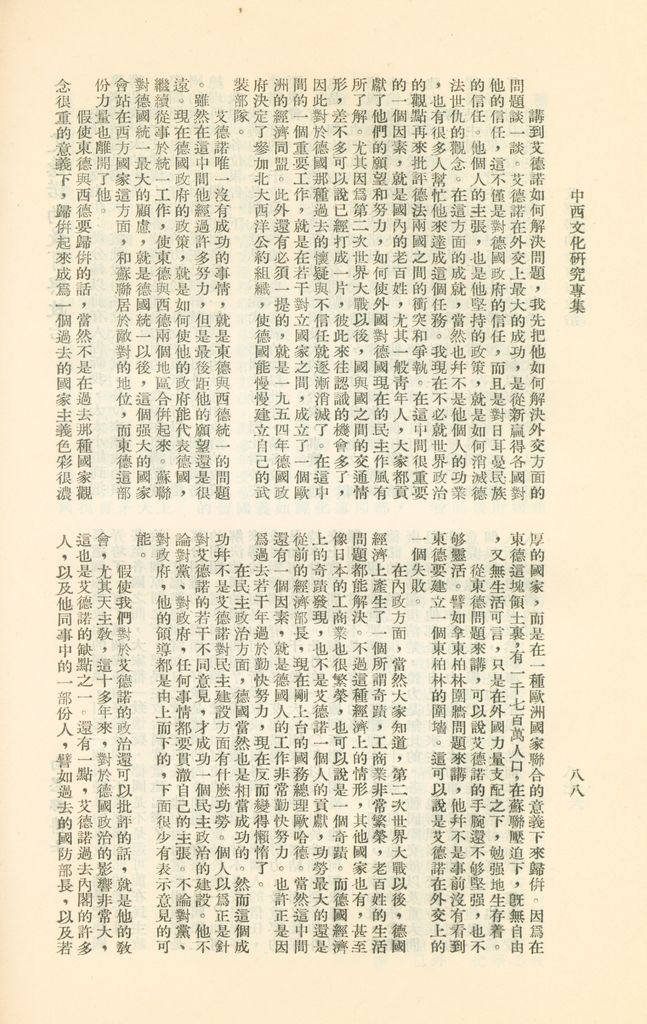 中西文化研究專集
八八
講到艾德諾如何解決問題，我先把他如何解決外交方面的
問題談一談。艾德諾在外交上最大的成功，是從新贏得各國對
他的信任，這不僅是對德國政府的信任，而且是對日耳曼民族
的信任。他個人的主張，也是他堅持的政策，就是如何消滅德
法世仇的觀念。在這方面的成就，當然也幷不是他個人的功業
，也有很多人幫忙他來達成這個任務。我現在不必就世界政治
的觀點再來批評德法兩國之間的衝突和爭執。在這中間很重要
的一個因素，就是國內的老百姓，尤其一般青年人，大家都貢
獻了他們的願望和努力，如何使外國對德國現在的民主作風有
所了解。尤其因爲第二次世界大戰以後，國與國之間的交通情
形，差不多可以說已經打成一片，彼此來往認識的機會多了，
因此對於德國那種過去的懷疑與不信任就逐漸消滅了。在這中
間的一個重要工作，就是在若干對立國家之間，成立了一個歐
洲的經濟同盟。此外還有必須一提的，就是一九五四年德國政
府決定了參加北大西洋公約組織，使德國能慢慢建立自己的武
裝部隊。
艾德諾唯一沒有成功的事情，就是東德與西德統一的問題
。雖然在這中間他經過許多努力，但是最後距他的願望還是很
遠。現在德國政府的政策，就是如何使他的政府能代表德國，
繼續從事於統一工作，使東德與西德兩個地區合倂起來。蘇聯
對德國統一最大的顧慮，就是德國統一以後，這個强大的國家
會站在西方國家這方面，和蘇聯居於敵對的地位，而東德這部
份力量也離開了他。
假使東德與西德要歸倂的話，當然不是在過去那種國家觀
念很重的意義下，歸倂起來成爲一個過去的國家主義色彩很濃
厚的國家，而是在一種歐洲國家聯合的意義下來歸倂。因爲在
東德這塊領土裏，有一千七百萬人口，在蘇聯壓迫下，旣無自由
，又無生活可言，只是在外國力量支配之下，勉强地生存着。
從東德問題來講，可以說艾德諾的手腕還不够堅强，也不
够靈活。譬如拿東柏林圍牆問題來講，他幷不是事前沒有看到
東德要建立一個東柏林的圍墻。這可以說是艾德諾在外交上的
一個失敗。
在內政方面，當然大家知道，第二次世界大戰以後，德國
經濟上產生了一個所謂奇蹟，工商業非常繁榮，老百姓的生活
問題都能解決。不過這種經濟上的情形，其他國家也有，甚至
像日本的工商業也很繁榮，也可以說是一個奇蹟。而德國經濟
上的奇蹟發現，也不是艾德諾一個人的貢獻，功勞最大的還是
從前的經濟部長，現在剛上台的國務總理歐哈德。當然這中間
還有一個因素，就是德國人的工作非常勤快努力。也許正是因
爲過去若干年過於勤快努力，現在反而變得懶惰了。
在民主政治方面，德國當然也是相當成功的。然而這個成
功幷不是艾德諾對民主建設方面有什麼功勞。個人以爲正是針
對艾德諾的若干不同意見，才成功一個民主政治的建設。他不
論對黨、對政府，任何事情都要貫澈自己的主張。不論對黨、
對政府，他的領導都是由上而下的，下面很少有表示意見的可
能。
假使我們對於艾德諾的政治還可以批評的話，就是他的敎
會，尤其天主敎，這十多年來，對於德國政治的影響非常大，
這也是艾德諾的缺點之一。還有一點，艾德諾過去內閣的許多
人，以及他同事中的一部份人，譬如過去的國防部長，以及若